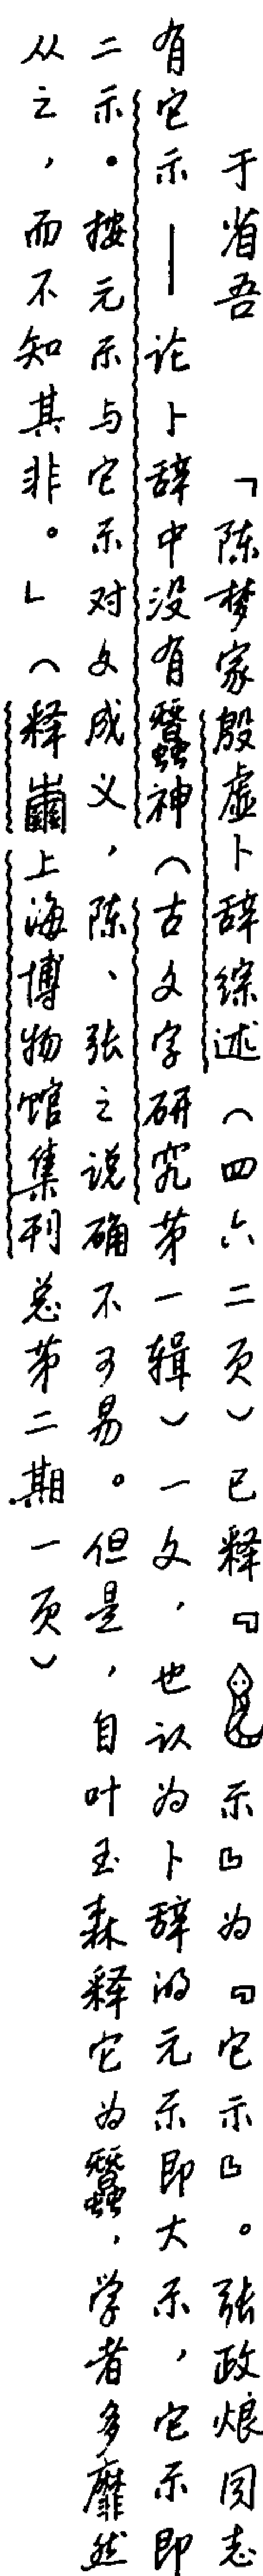 于省吾　「陈梦家殷虚卜辞综述（四六二页）已释『示』为『它示』。张政烺同志
有它示——论卜辞中没有蠶神（古文字研究第一辑）一文，也认为卜辞的元示即大示，它示即
二示。按元示与它示对文成义，陈、张之说确不可易。但是，自叶玉森释它为蠶，学者多靡然
从之，而不知其非。」（释上海博物馆集刊总第二期一页）